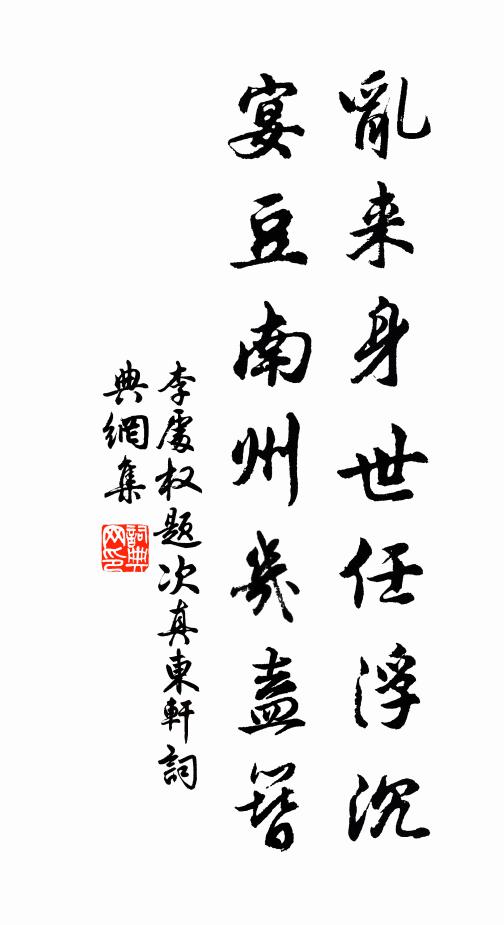 亂来身世任浮沉
宴豆南州幾盍簪
李處权题次真東軒詞
典網集
詞典网印